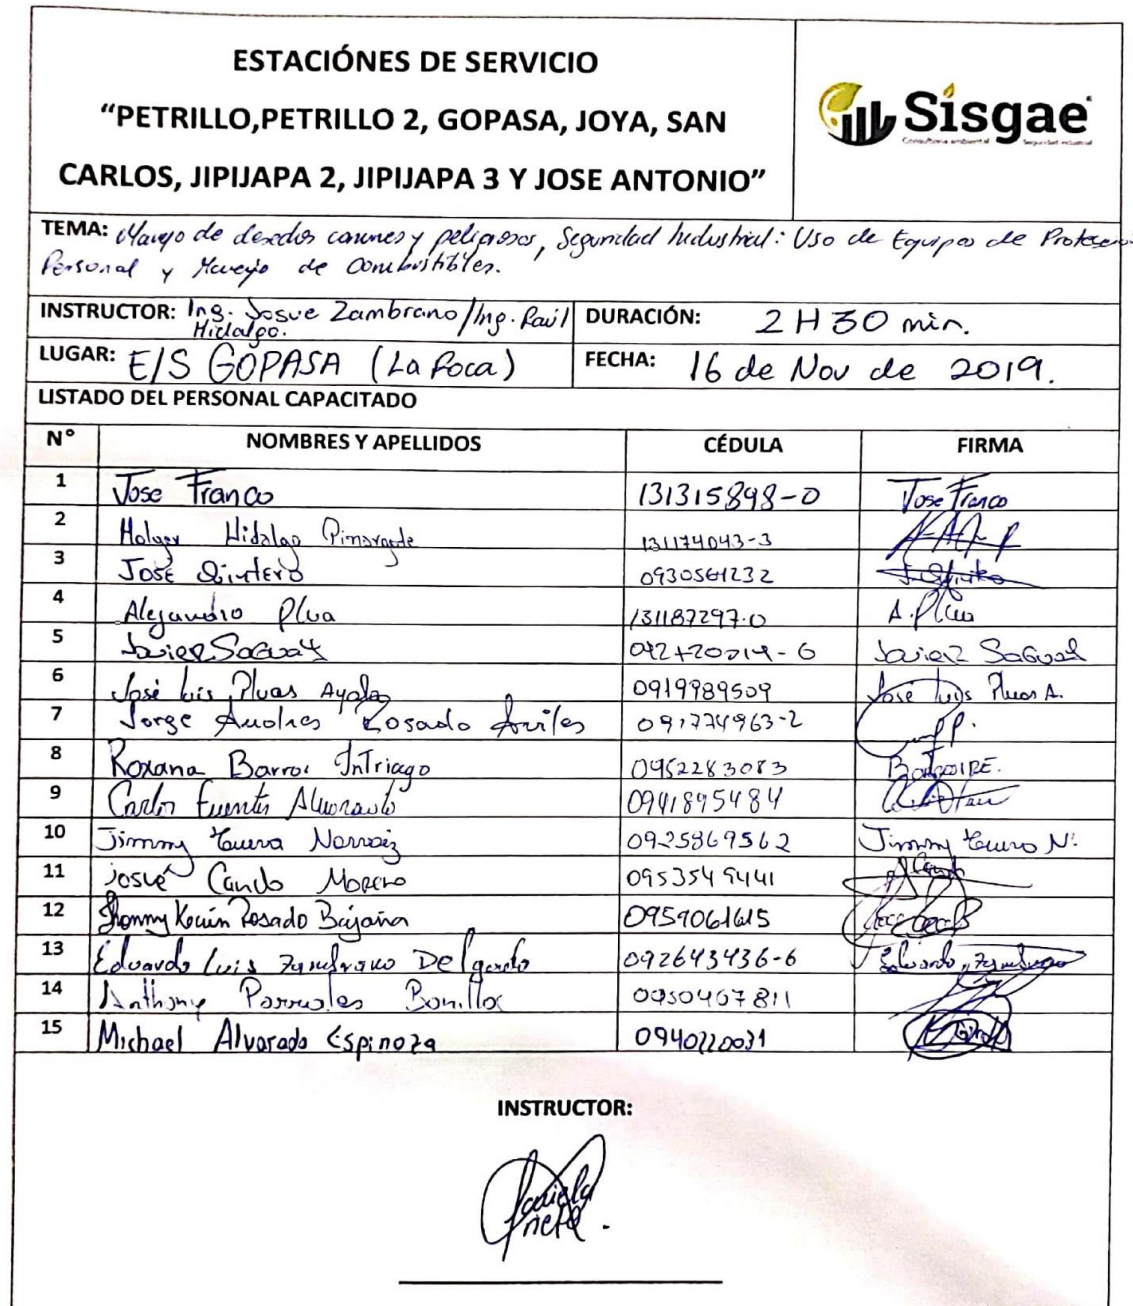 ESTACIÓNES DE SERVICIO
“PETRILLO,PETRILLO 2, GOPASA, JOYA, SAN
CARLOS, JIPIJAPA 2, JIPIJAPA 3 Y JOSE ANTONIO”
Sisgae
Consultoria ambiental Seguridad industrial
TEMA: Manejo de desechos comunes y peligrosos, Seguridad Industrial: Uso de Equipos de Protección
Personal y Manejo de Combustibles.
INSTRUCTOR: Ing. Josue Zambrano/Ing. Raúl
Hidalgo.
DURACIÓN: 2 H 30 min.
LUGAR: E/S GOPASA (La Poca)
FECHA: 16 de Nov de 2019.
LISTADO DEL PERSONAL CAPACITADO
N° NOMBRES Y APELLIDOS CÉDULA FIRMA
1 Jose Franco 131315898-0 Jose Franco
2 Holger Hidalgo 131174043-3
3 José Quintero 0930561232
4 Alejandro Plua 131187297-0 A. Plua
5 Javier
6 José Luis Pluas Ayala 0919989509 José Luis Pluas A.
7 Jorge Andres Rosado Aviles 091774963-2
8 Roxana Barros Intriago 0952283083
9 Carlos Fuentes Alvarado 0941895484
10 Jimmy 0925869562 Jimmy
11 Josué Cando Moreno 0953549441
12 Jhonny Kevin Rosado Bajaña 0959061615
13 Eduardo Luis Zambrano Delgado 092643436-6 Eduardo Zambrano
14 Anthony Parrales Bonilla 0950467811
15 Michael Alvarado Espinoza 0940220031
INSTRUCTOR: